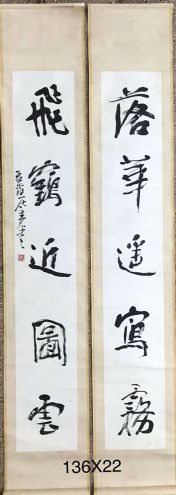 落華遥寫霧
飛鶴近圖雲
136X22